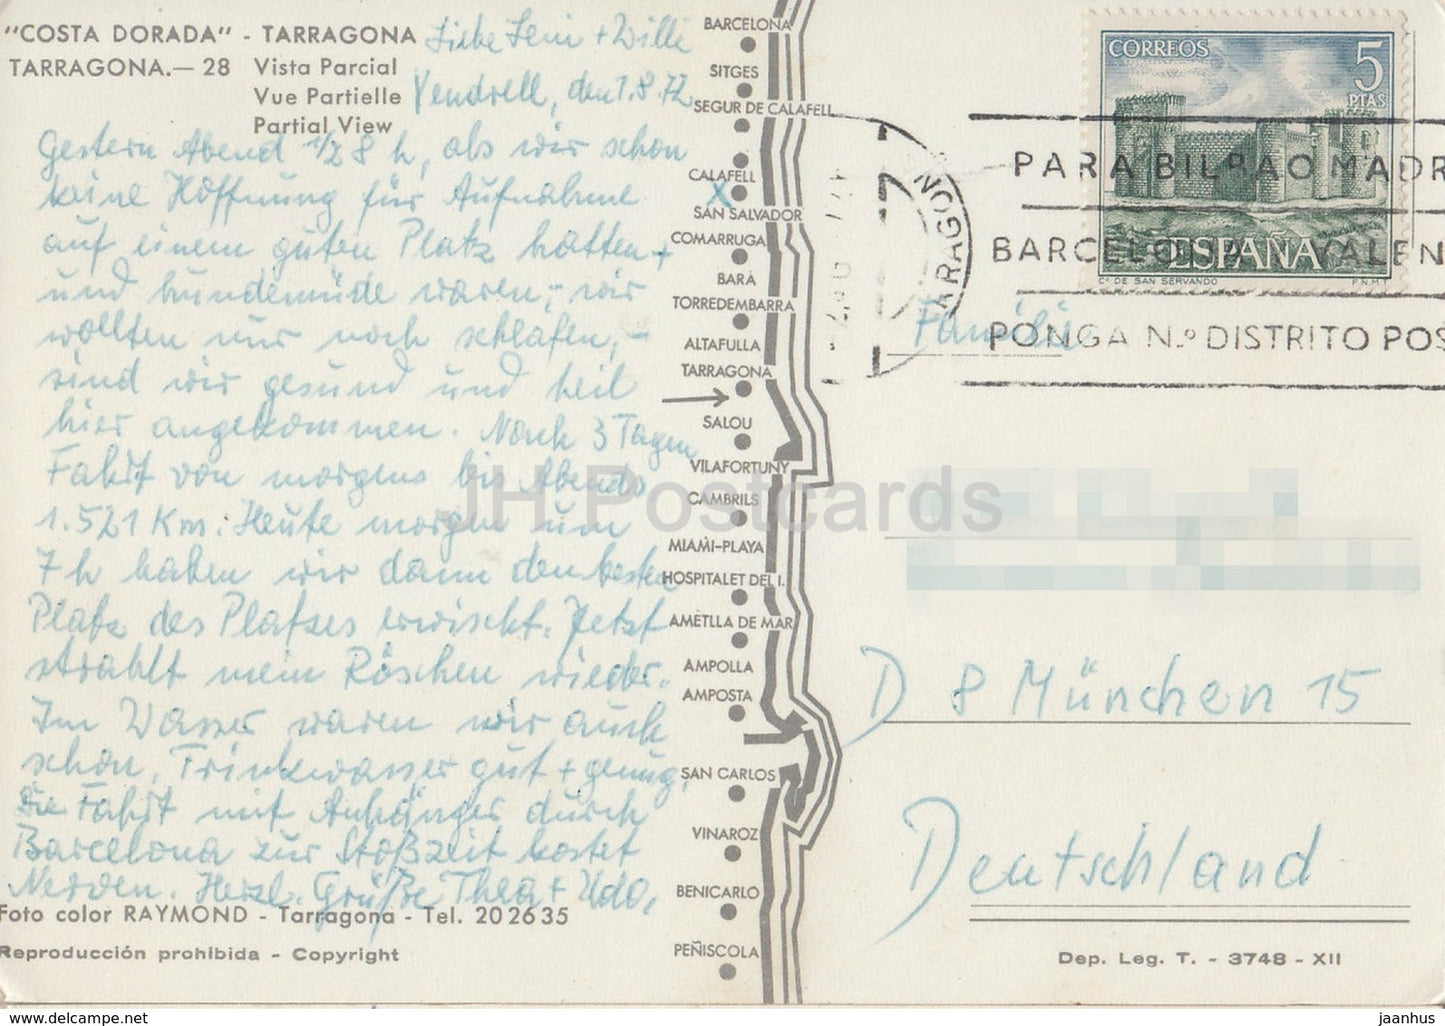 "COSTA DORADA" - TARRAGONA
TARRAGONA.— 28 Vista Parcial
Vue Partielle
Partial View
Liebe Leni + Willi
Vendrell, den 1.8.72
Gestern Abend 1/2 8 h, als wir schon
keine Hoffnung für Aufnahme
auf einem guten Platz hatten +
und hundemüde waren, - wir
wollten nur noch schlafen, -
sind wir gesund und heil
hier angekommen. Nach 3 Tagen
Fahrt von morgens bis Abends
1.521 Km. Heute morgen um
7 h haben wir dann den besten
Platz des Platzes erwischt. Jetzt
strahlt mein Röschen wieder.
Im Wasser waren wir auch
schon. Trinkwasser gut + genug,
Die Fahrt mit Anhänger durch
Barcelona zur Stoßzeit kostet
Nerven. Herzl. Grüße Thea + Udo.
Foto color RAYMOND - Tarragona - Tel. 202635
Reproducción prohibida - Copyright
BARCELONA
SITGES
SEGUR DE CALAFELL
CALAFELL
X
SAN SALVADOR
COMARRUGA
BARÁ
TORREDEMBARRA
ALTAFULLA
TARRAGONA
SALOU
VILAFORTUNY
CAMBRILS
MIAMI-PLAYA
HOSPITALET DEL I.
AMETLLA DE MAR
AMPOLLA
AMPOSTA
SAN CARLOS
VINAROZ
BENICARLO
PEÑISCOLA
CORREOS
5
PTAS
ESPAÑA
Cº DE SAN SERVANDO F.N.M.T.
PARA BILBAO MADR
BARCELONA VALEN
PONGA N.º DISTRITO POS
Familie
D 8 München 15
Deutschland
Dep. Leg. T. - 3748 - XII
JH Postcards
www.delcampe.net
jaanhus